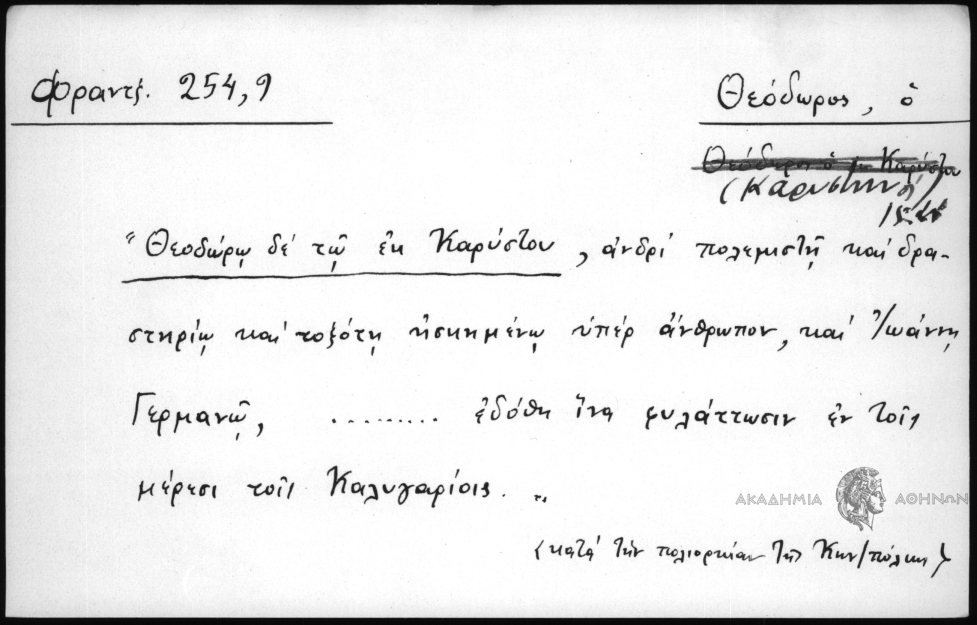 Φραντζ. 254,9
Θεόδωρος, ὁ
Θεόδωρος ὁ ἐκ Καρύστου
(Καρυστηνὸς)
"Θεοδώρῳ δέ τῷ ἐκ Καρύστου, ἀνδρί πολεμιστῇ καί δρα-
στηρίῳ καί τοξότῃ ἠσκημένῳ ὑπέρ ἄνθρωπον, καί Ἰωάννῃ
Γερμανῷ, ......... ἐδόθη ἵνα φυλάττωσιν ἐν τοῖς
μέρεσι τοῖς Καλυγαρίοις. ..
ΑΚΑΔΗΜΙΑ ΑΘΗΝΩΝ
(κατά τήν πολιορκίαν τῆς Κων/πόλεως)